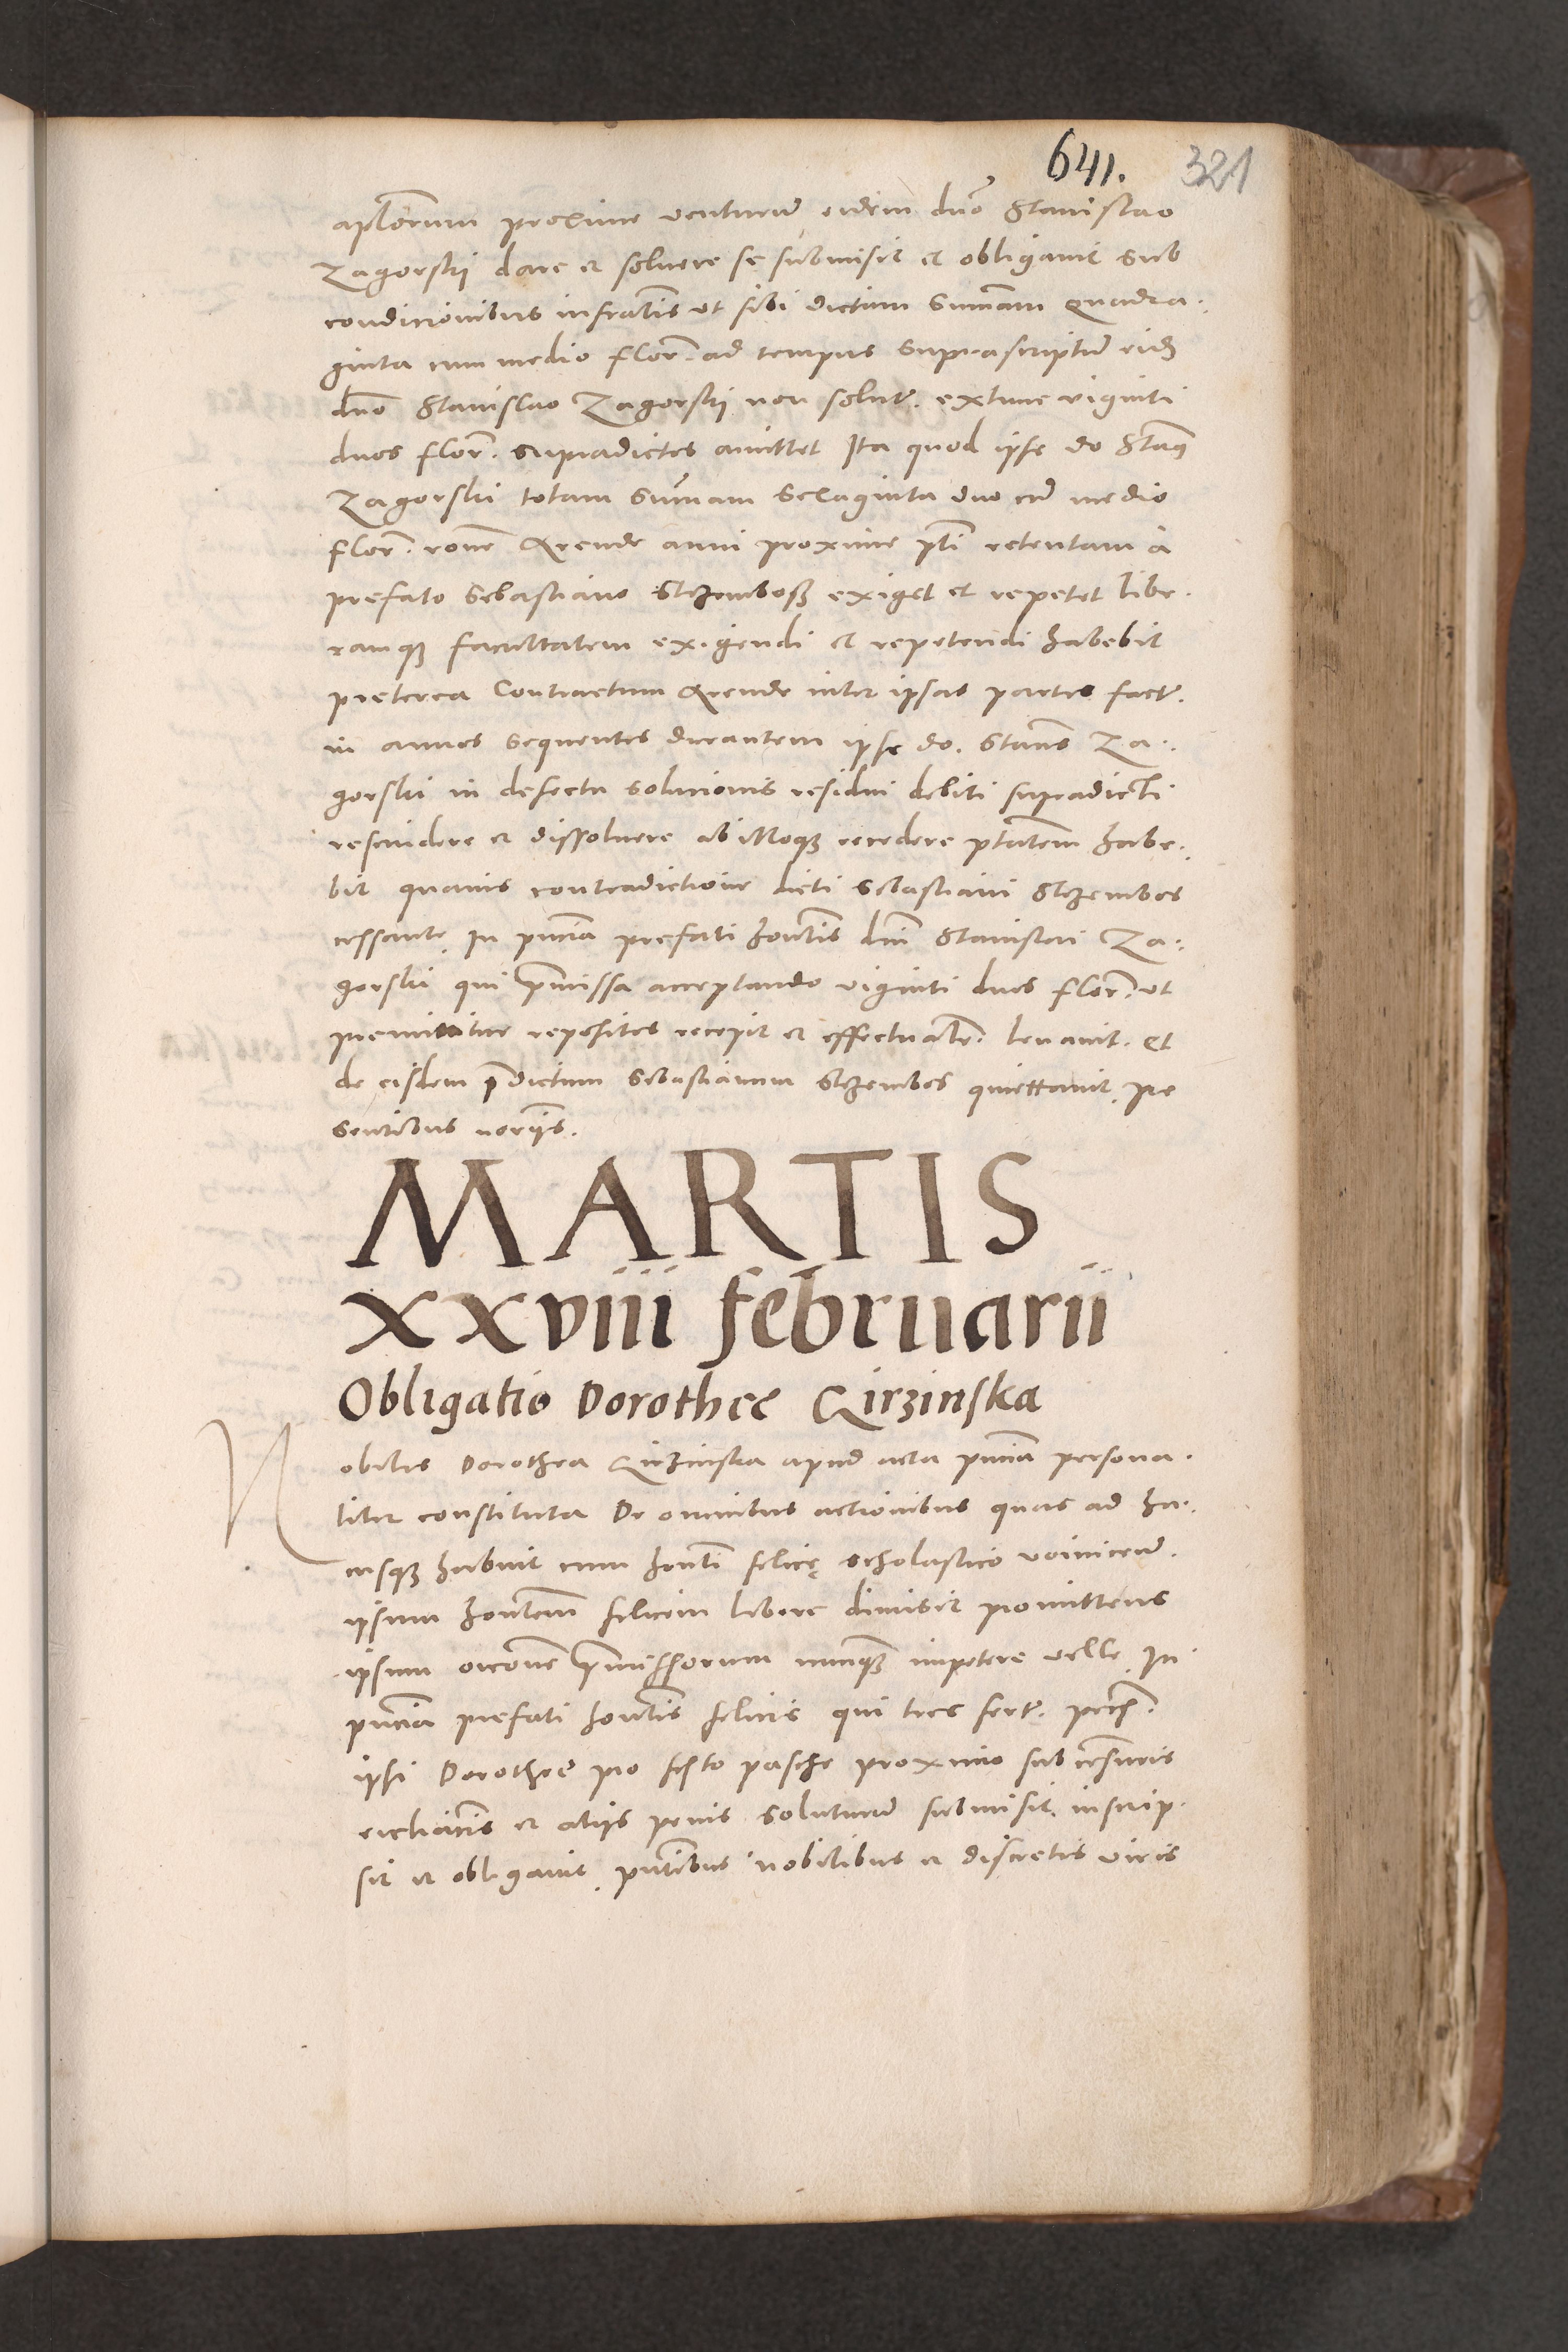 641. 321
apl̃orum proxime venturũ eidem dño Stanislao
Zagorski dare et soluere se submisit et obligauit sub
condicionibus infrascr̃tis ut sibi dictam summam quadra-
ginta cum medio flor̃. ad tempus suprascriptũ eidẽ
dño Stanislao Zagorski non soluer̃. extunc viginti
duos flor̃. supradictos amittet Ita quod ipse do Stañ
Zagorski totam sum̃am sexaginta duo cũ medio
flor̃. rõne Arende anni proxime p̃ti retentam a
prefato Sebastiano Strzemboss exiget et repetet libe-
ramq3 facultatem exigendi et repetendi habebit
preterea Contractum Arende inter ipsas partes factũ.
in annos sequentes durantem ipse do. Stañs Za-
gorski in defectu solucionis residui debiti supradicti
rescindere et dissoluere ab illoq3 recedere p̃tatem habe-
bit quauis contradictione dicti Sebastiani Strzembos
cessante, In p̃ncia prefati hon̄tis dñi Stanislai Za-
gorski qui p̃missa acceptando viginti duos flor̃. ut
premittitur repositos recepit et effectualr̃. leuauit. et
de eisdem p̃dictum Sebastianum Strzembos quiettauit, pre
sentibus
MARTIS
xxviii februarii
Obligatio Dorothee Kirzinska
Nobilis Dorothea Kirzinska apud acta p̃ncia persona-
liter constituta De omnibus actionibus quas ad ha-
cusq3 habuit cum hon̄ti felice scholastico
ipsum hon̄tem felicem libere dimisit promittens
ipsum occõne p̃missorum nunq3 impetere velle, In
p̃ncia prefati hon̄tis felicis qui tres fert̃.
ipsi Dorothee pro festo pasche proximo sub censuris
eccliãticis et alijs penis soluturũ submisit. inscrip-
sit et obligauit, p̃ntibus nobilibus et discretis viris